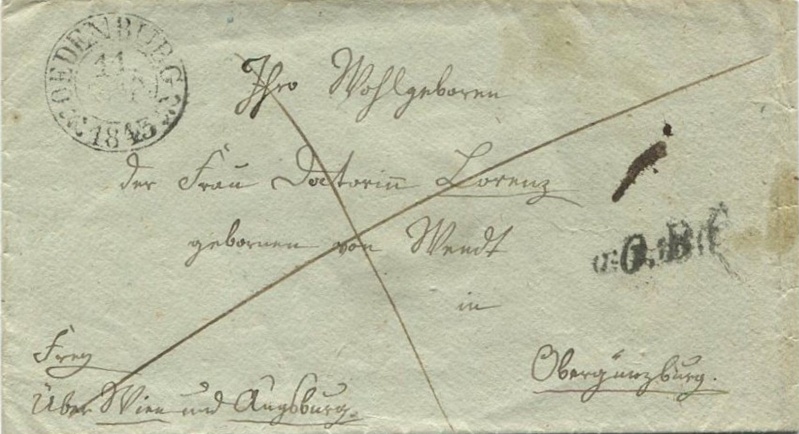 OEDENBURG
11
1843
Ihro Wohlgeboren
der Frau Doctorinn Lorenz
gebornen von Wendt
in
Obergünzburg.
Frey
über Wien und Augsburg.